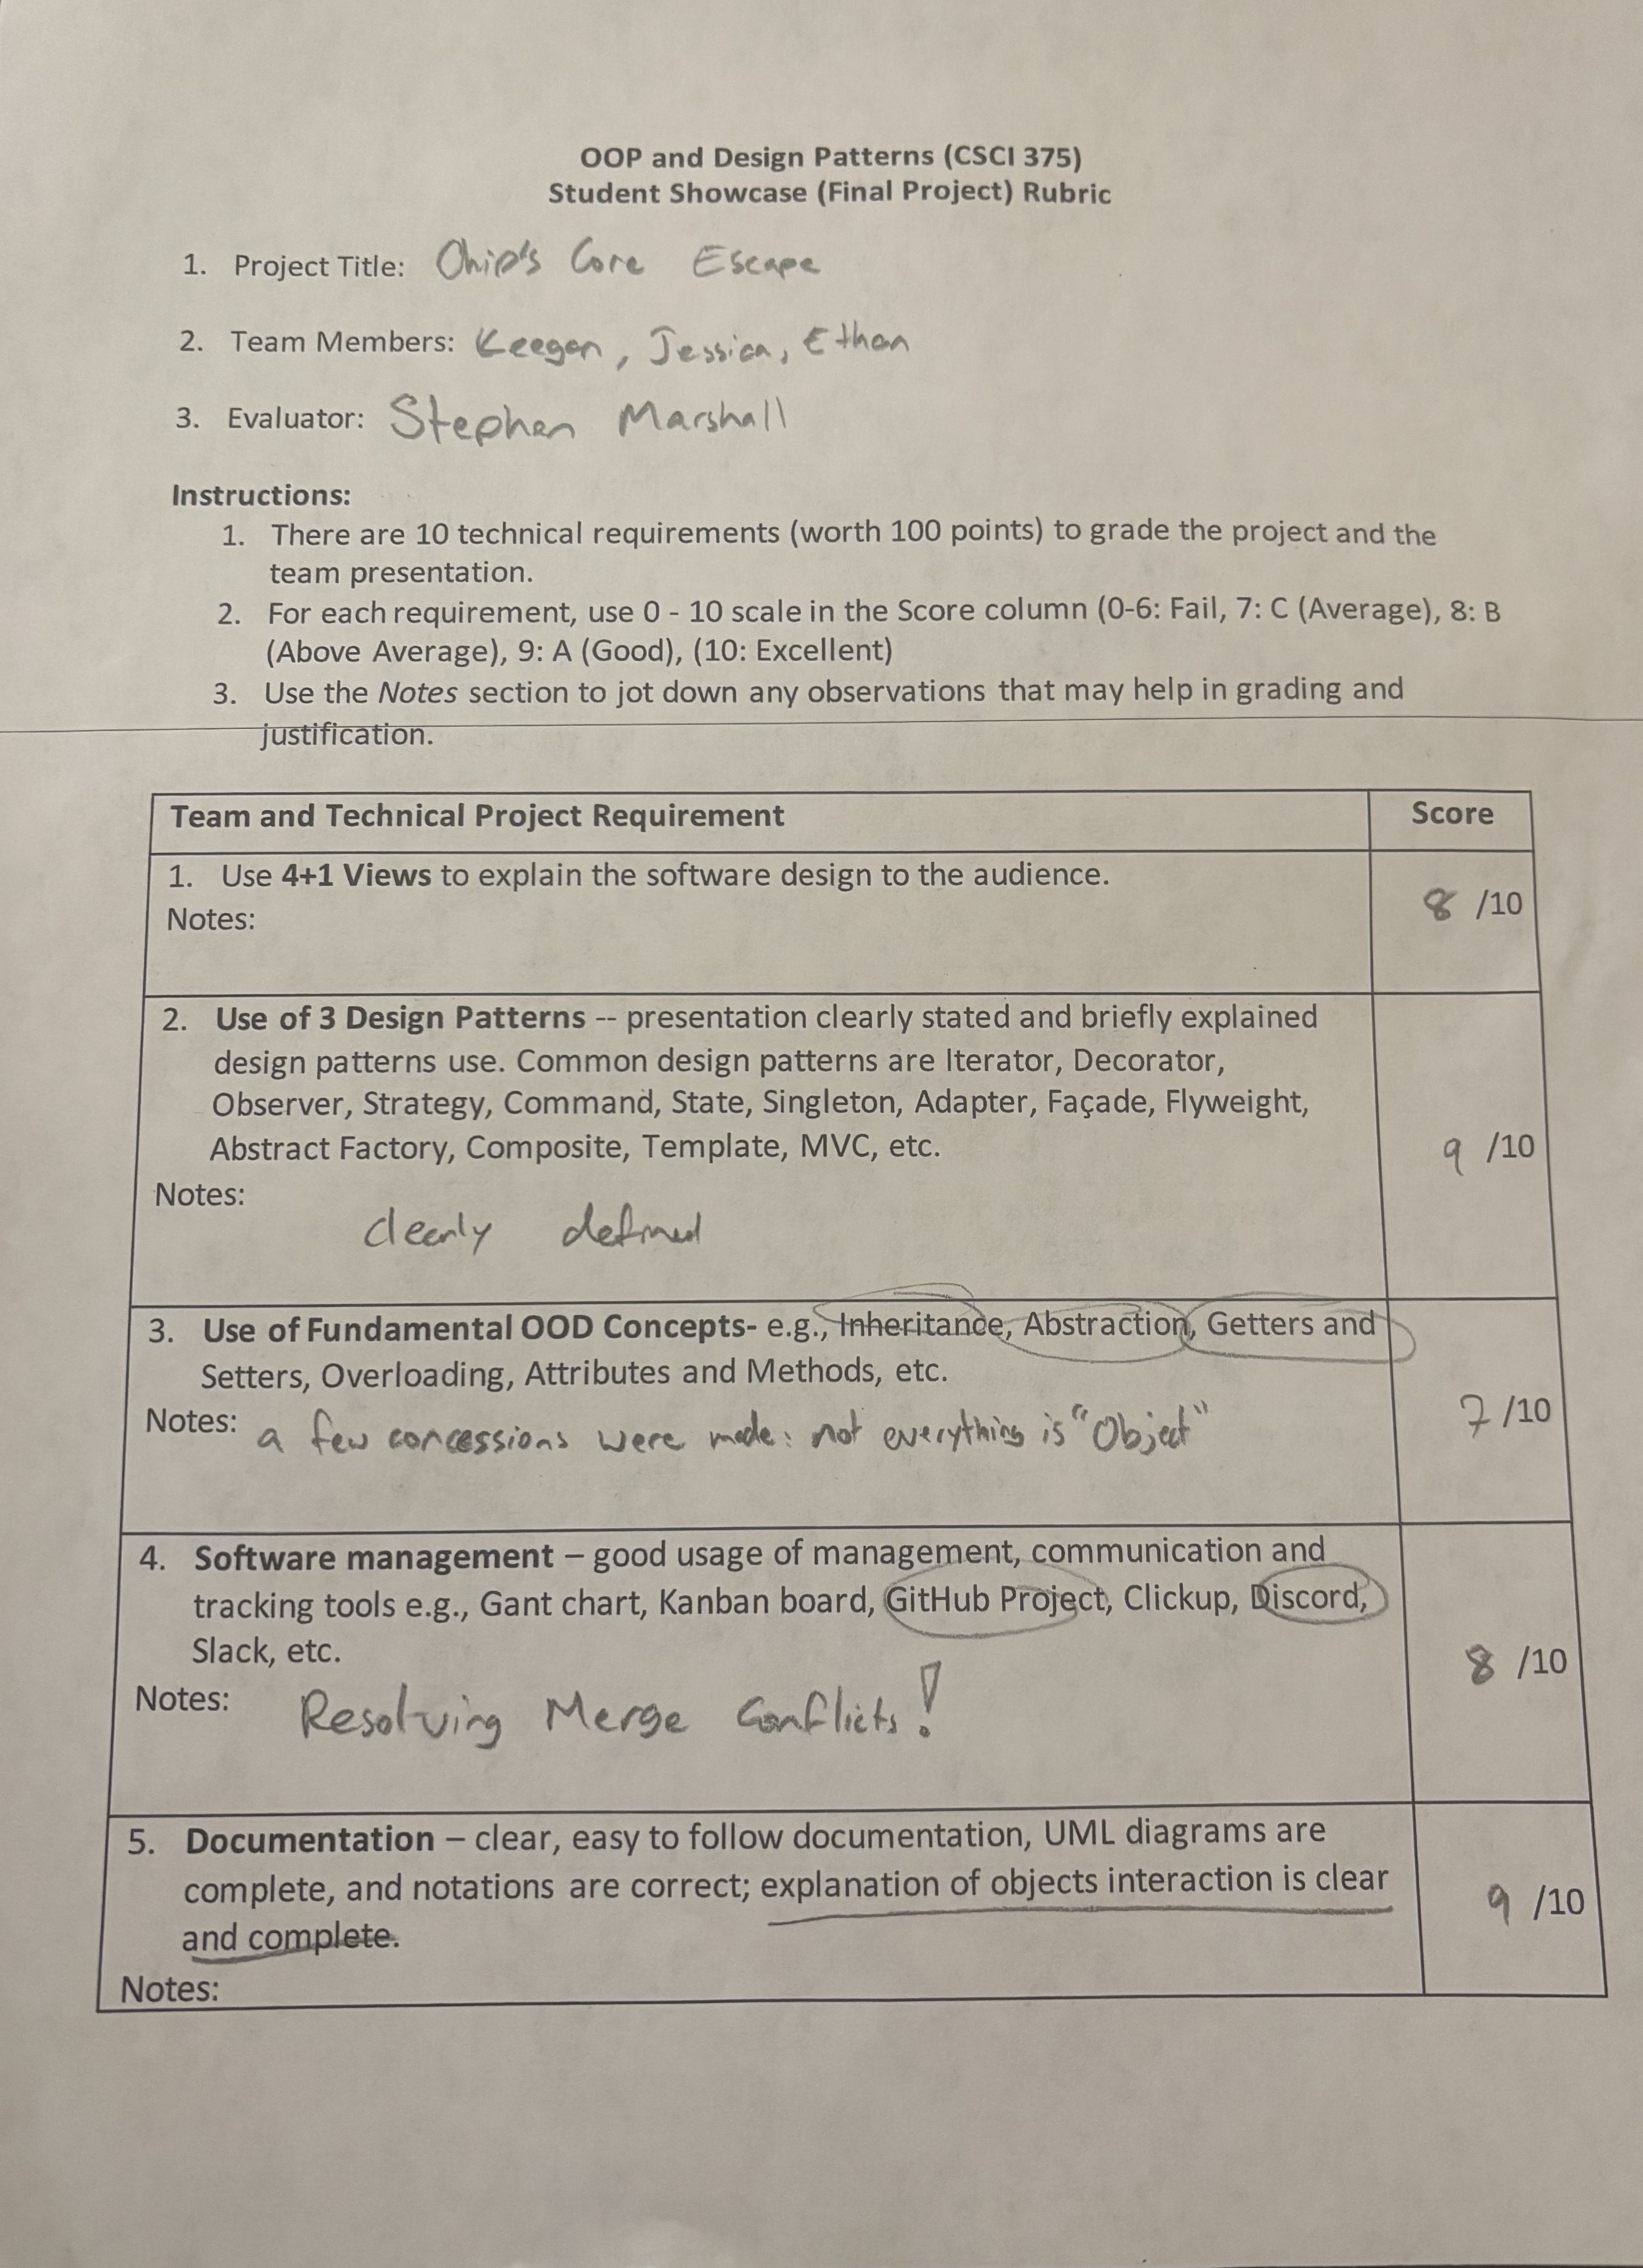 OOP and Design Patterns (CSCI 375)
Student Showcase (Final Project) Rubric
1. Project Title: Ohip's Core Escape
2. Team Members: Keegan, Jessica, Ethan
3. Evaluator: Stephen Marshall
Instructions:
1. There are 10 technical requirements (worth 100 points) to grade the project and the
team presentation.
2. For each requirement, use 0 - 10 scale in the Score column (0-6: Fail, 7: C (Average), 8: B
(Above Average), 9: A (Good), (10: Excellent)
3. Use the Notes section to jot down any observations that may help in grading and
justification.
Team and Technical Project Requirement Score
1. Use 4+1 Views to explain the software design to the audience.
Notes:
8 /10
2. Use of 3 Design Patterns -- presentation clearly stated and briefly explained
design patterns use. Common design patterns are Iterator, Decorator,
Observer, Strategy, Command, State, Singleton, Adapter, Façade, Flyweight,
Abstract Factory, Composite, Template, MVC, etc.
9 /10
Notes:
clearly defined
3. Use of Fundamental OOD Concepts- e.g., Inheritance, Abstraction, Getters and
Setters, Overloading, Attributes and Methods, etc.
Notes: a few concessions were made: not everything is "Object"
7 /10
4. Software management – good usage of management, communication and
tracking tools e.g., Gant chart, Kanban board, GitHub Project, Clickup, Discord,
Slack, etc.
8 /10
Notes: Resolving Merge Conflicts!
5. Documentation – clear, easy to follow documentation, UML diagrams are
complete, and notations are correct; explanation of objects interaction is clear
and complete.
9 /10
Notes: